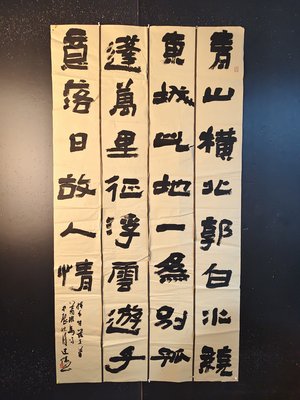 青山橫北郭白水繞
東城此地一爲別孤
蓬萬里征浮雲遊子
意落日故人情